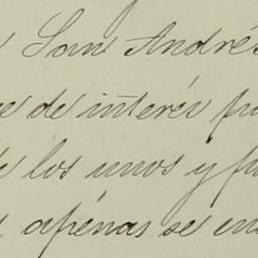 San Andrés
de interés
los unos y
apénas se